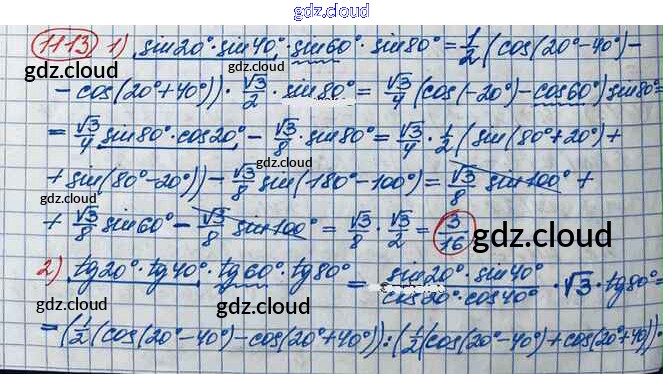 gdz.cloud
1113 1) sin20°·sin40°·sin60°·sin80° = 1/2 (cos(20°-40°)-
gdz.cloud gdz.cloud
- cos(20°+40°))·√3/2·sin80° = √3/4 (cos(-20°)-cos60°)sin80° =
gdz.cloud
= √3/4 sin80°·cos20° - √3/8·sin80° = √3/4·1/2 (sin(80°+20°)+
gdz.cloud
+ sin(80°-20°)) - √3/8 sin(180°-100°) = √3/8 sin100° +
gdz.cloud
+ √3/8 sin60° - √3/8 sin100° = √3/8·√3/2 = 3/16
gdz.cloud
2) tg20°·tg40°·tg60°·tg80° = sin20°·sin40°/cos20°·cos40°·√3·tg80° =
gdz.cloud gdz.cloud
= (1/2 (cos(20°-40°)-cos(20°+40°)):(1/2(cos(20°-40°)+cos(20°+40°))·